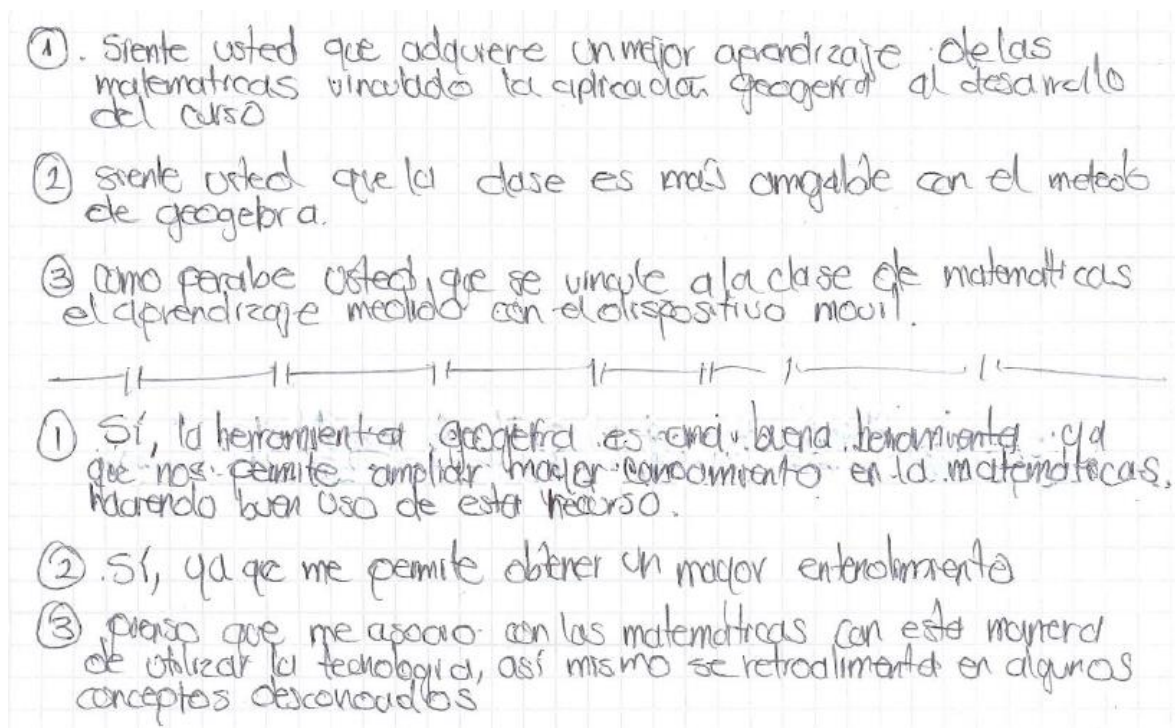 ①. siente usted que adquiere un mejor aprendizaje de las
matematicas vinculado la aplicación geogebra al desarrollo
del curso
② siente usted que la clase es mas amigable con el metodo
de geogebra.
③ como percibe usted, que se vincule a la clase de matematicas
el aprendizaje mediado con el dispositivo movil.
① Sí, la herramienta geogebra es una buena herramienta ya
que nos permite ampliar mayor conocimiento en la matemáticas,
haciendo buen uso de este recurso.
②. Sí, ya que me permite obtener un mayor entendimiento
③ pienso que me asocio con las matematicas con esta manera
de utilizar la tecnologia, así mismo se retroalimenta en algunos
conceptos desconocidos